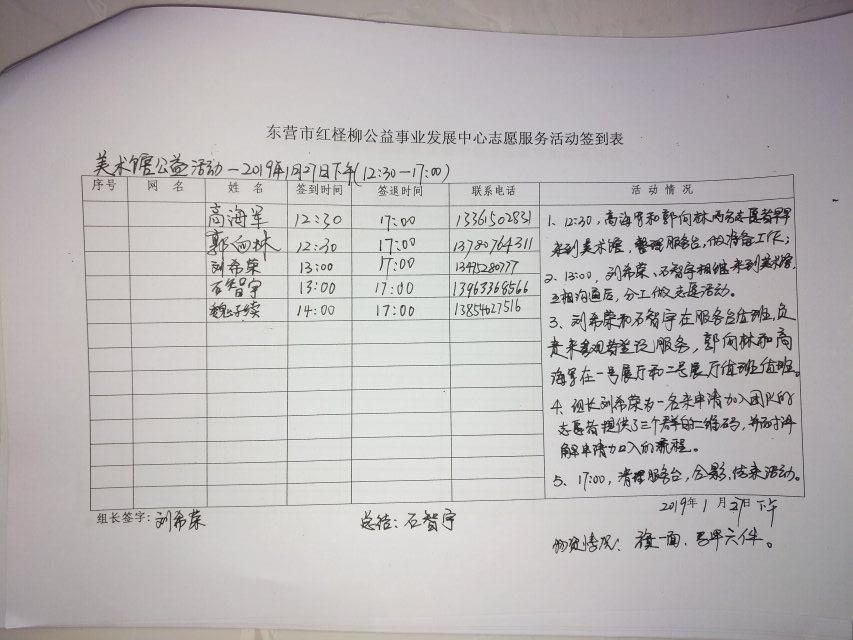 东营市红柽柳公益事业发展中心志愿服务活动签到表
美术馆公益活动—2019年1月27日下午(12:30—17:00)
序号 网 名 姓 名 签到时间 签退时间 联系电话 活 动 情 况
高海军 12:30 17:00 13361502831
郭向林 12:30 17:00 13780764311
刘希荣 13:00 17:00 13475280777
石智宇 13:00 17:00 13963368566
魏子续 14:00 17:00 13854627516
1、12:30,高海军和郭向林两名志愿者早早
来到美术馆,整理服务台,做准备工作;
2、13:00,刘希荣、石智宇相继来到美术馆,
互相沟通后,分工做志愿活动。
3、刘希荣和石智宇在服务台值班,负
责来客观者登记服务,郭向林和高
海军在一号展厅和二号展厅值班值班。
4、组长刘希荣为一名来申请加入团队的
志愿者提供了三个群的二维码,并耐讲
解申请加入的流程。
5、17:00,清理服务台,合影,结束活动。
2019年1月27日下午
组长签字:刘希荣 总结:石智宇
物资情况:旗一面、马甲六件。